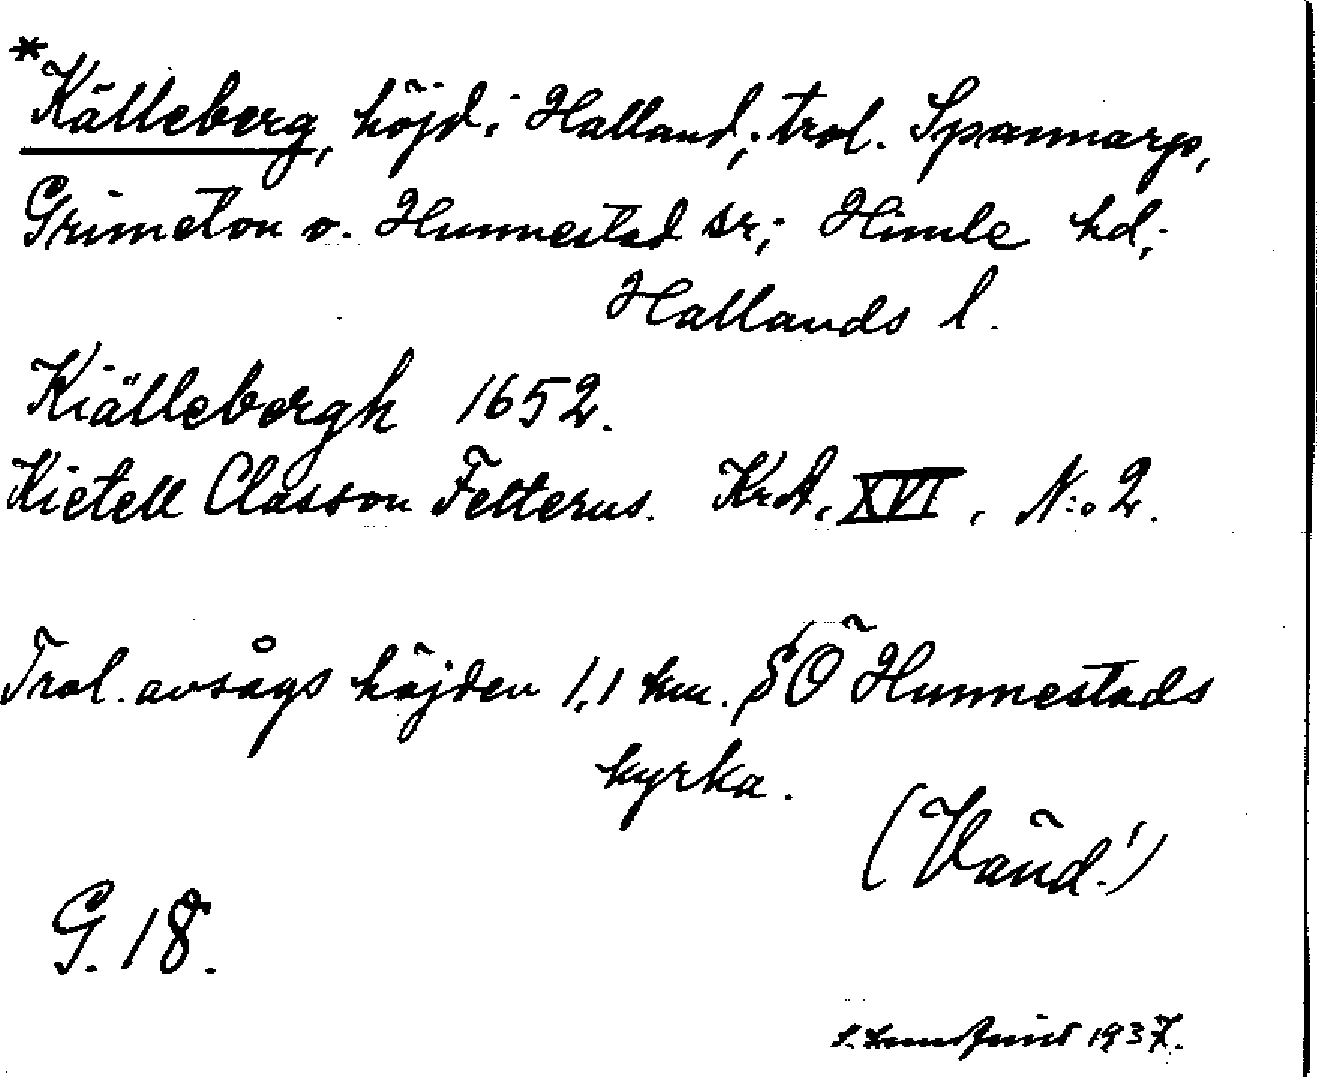 *Källeberg, höjd i Halland; trol. Spannarps,
Grimeton o. Hunnestad sr; Himle hd;
Hallands l.
Kiällebergh 1652.
Kietell Classon Felterus. KrA, XVI, N:o 2.
Trol. avsågs höjden 1,1 km. SÖ Hunnestads
kyrka.
(Vänd!)
G. 18.
1937.